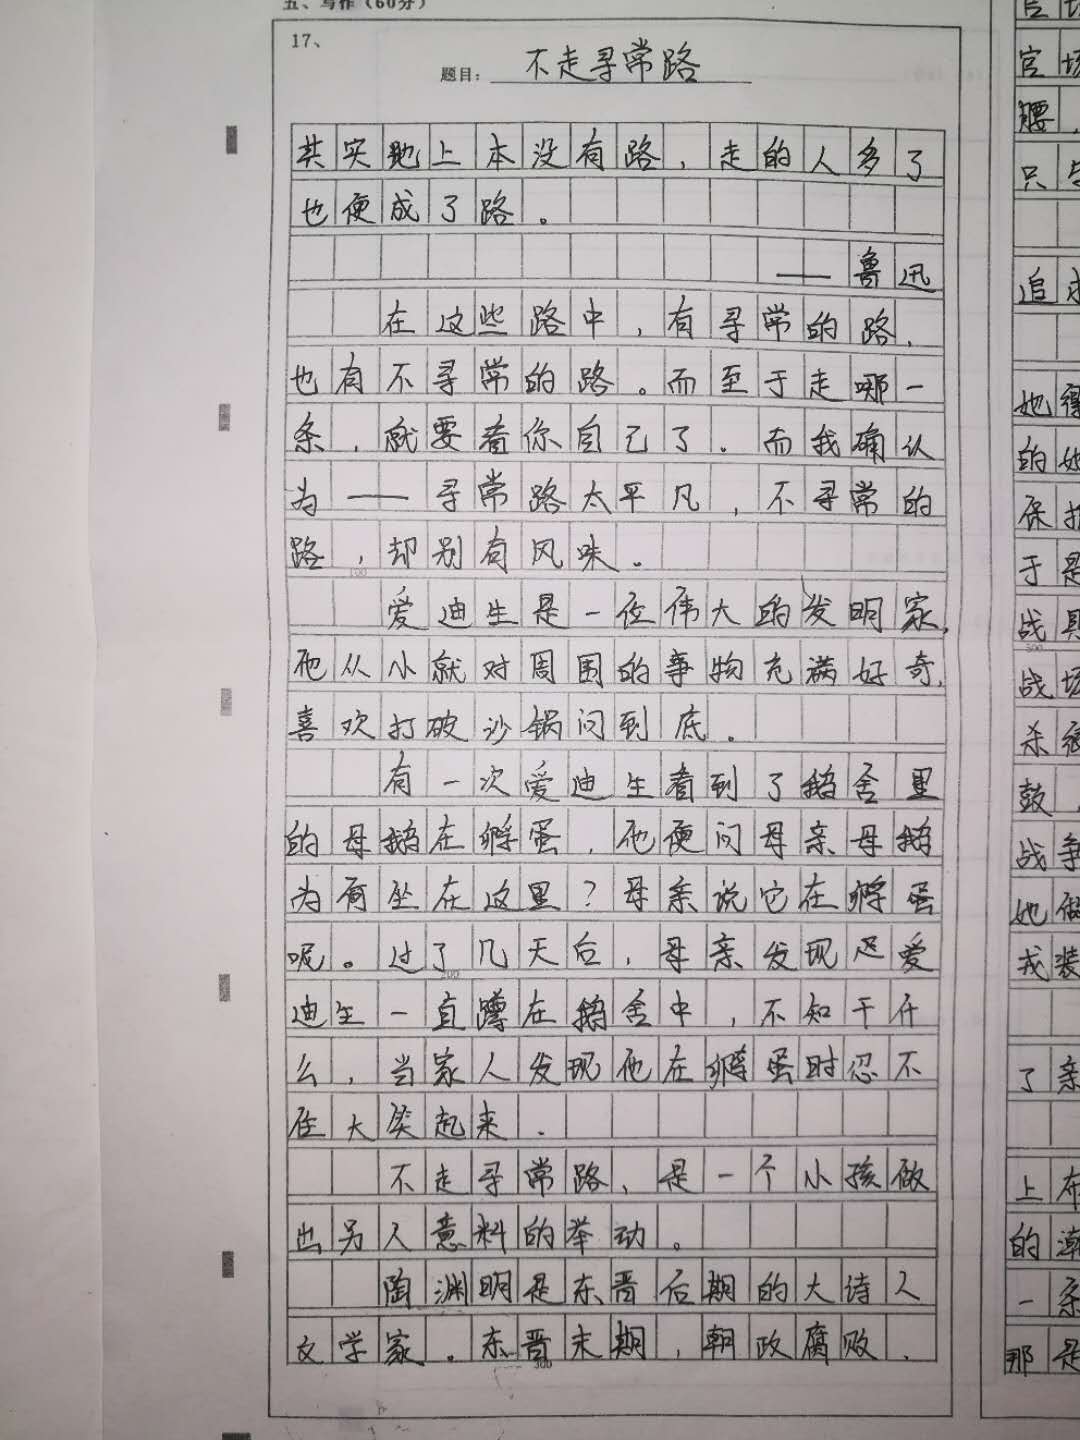 五、写作（60分）
17、
题目：不走寻常路
其实地上本没有路，走的人多了
也便成了路。
——鲁迅
在这些路中，有寻常的路，
也有不寻常的路。而至于走哪一
条，就要看你自己了。而我确认
为——寻常路太平凡，不寻常的
路，却别有风味。
100
爱迪生是一位伟大的发明家，
他从小就对周围的事物充满好奇，
喜欢打破沙锅问到底。
有一次爱迪生看到了鹅舍里
的母鹅在孵蛋，他便问母亲母鹅
为何坐在这里？母亲说它在孵蛋
呢。过了几天后，母亲发现迟爱
200
迪生一直蹲在鹅舍中，不知干什
么，当家人发现他在孵蛋时忍不
住大笑起来．
不走寻常路，是一个小孩做
出另人意料的举动。
陶渊明是东晋后期的大诗人
文学家．东晋末期，朝政腐败，
300
官场
腰，
只
追求
她
的她
保护
于是
战
500
战场
杀
鼓，
战争
她
戎装
了亲
上
的
一条
那是